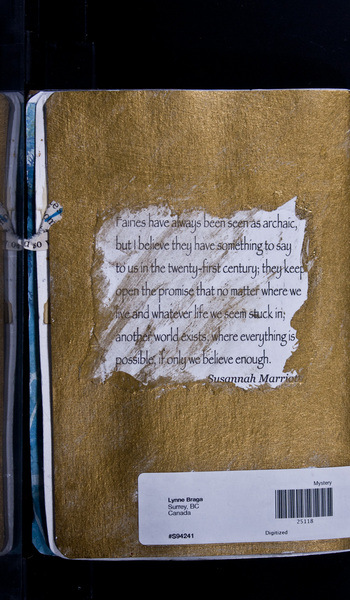 Fairies have always been seen as archaic,
but I believe they have something to say
to us in the twenty-first century; they keep
open the promise that no matter where we
live and whatever life we seem stuck in;
another world exists, where everything is
possible, if only we believe enough.
Susannah Marriott
Mystery
Lynne Braga
Surrey, BC
Canada
25118
#S94241
Digitized